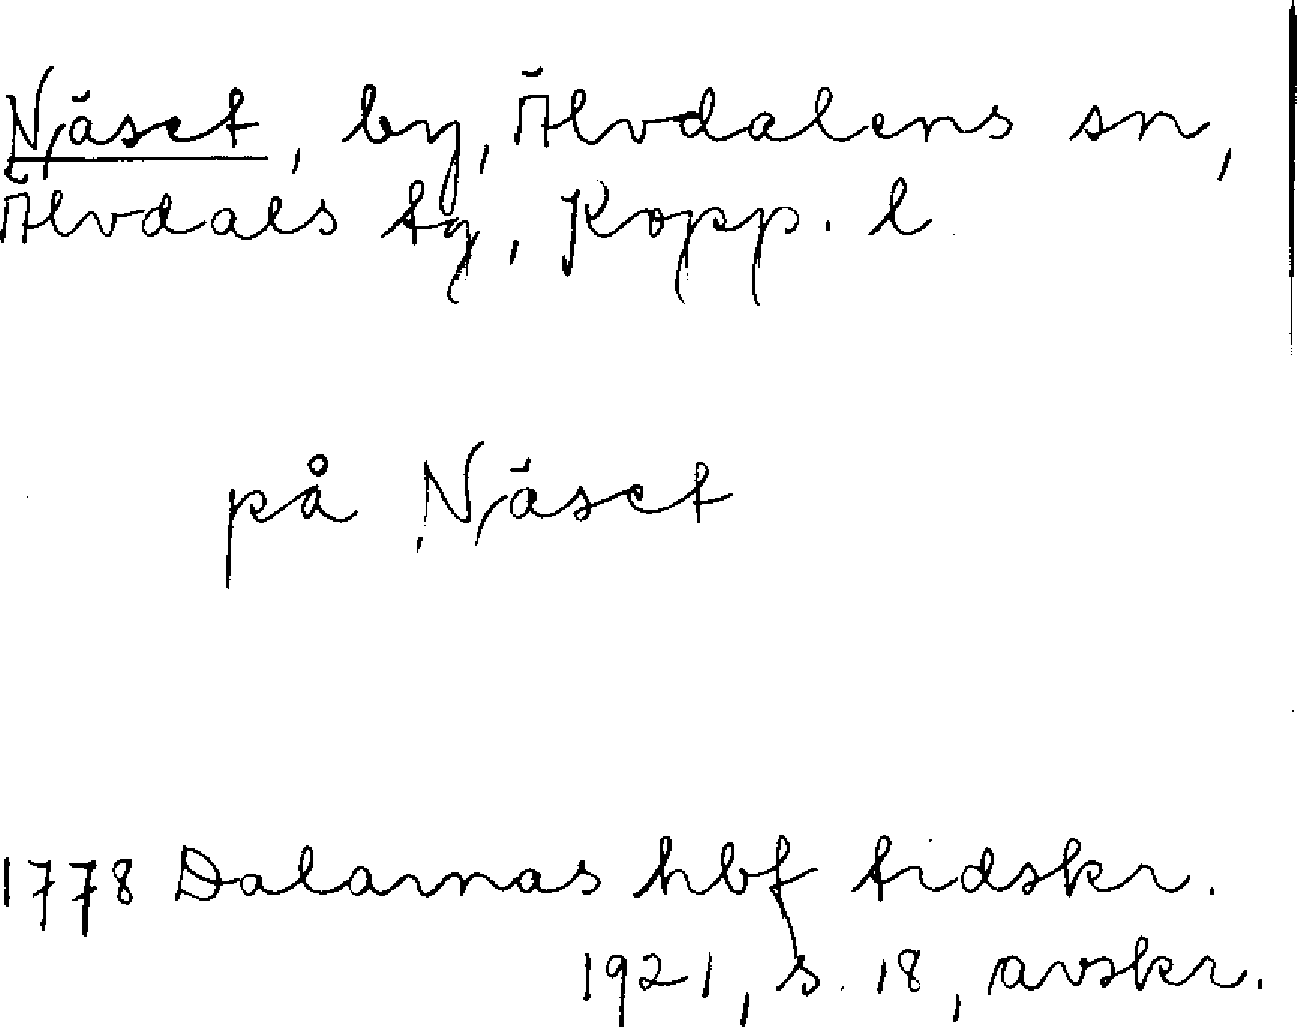 Näset, by, Älvdalens sn,
Älvdals tg, Kopp. l
på Näset
1778 Dalarnas hbf tidskr.
1921, s. 18, avskr.